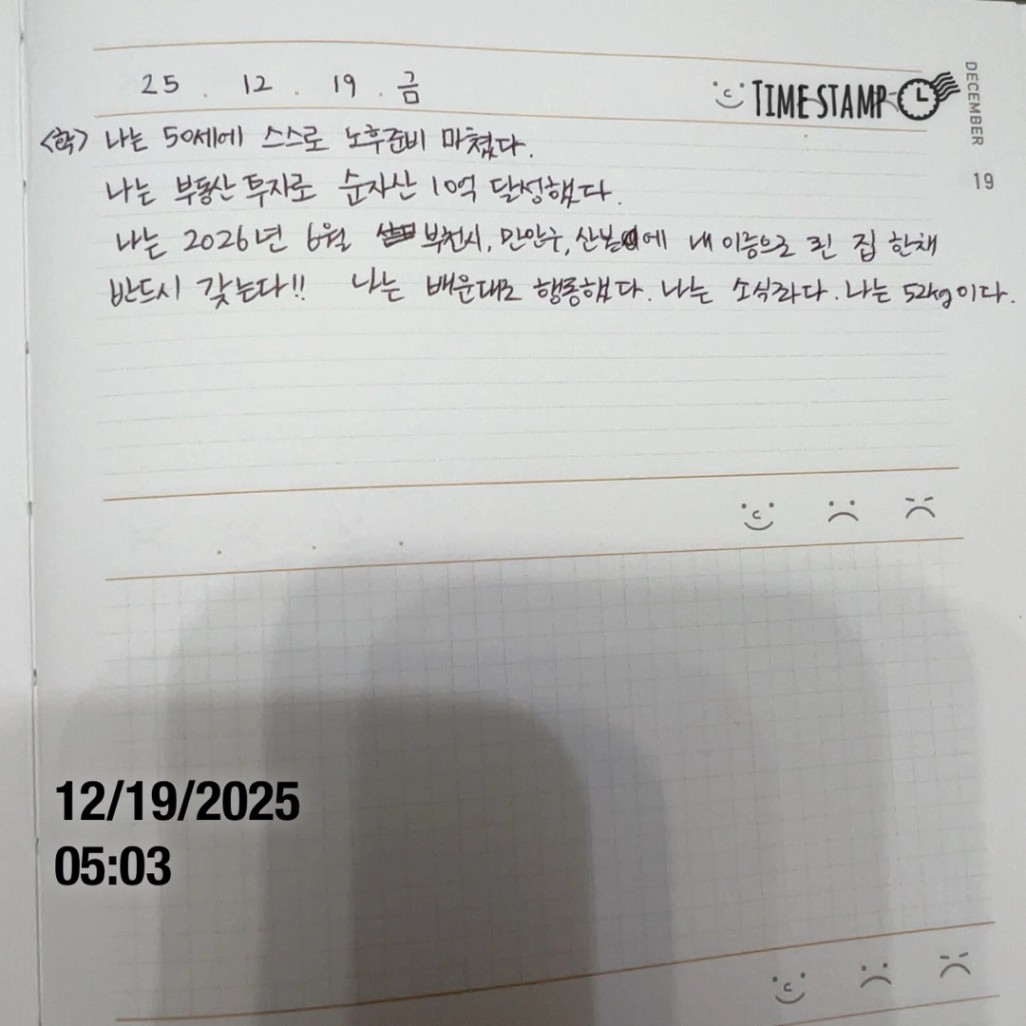 25 . 12 . 19 . 금
TIME STAMP
DECEMBER
19
<확> 나는 50세에 스스로 노후준비 마쳤다.
나는 부동산 투자로 순자산 10억 달성했다.
나는 2026년 6월 부천시, 만안구, 산본에 내 이름으로 된 집 한채
반드시 갖는다!! 나는 배운대로 행동했다. 나는 소식라다. 나는 52kg이다.
12/19/2025
05:03